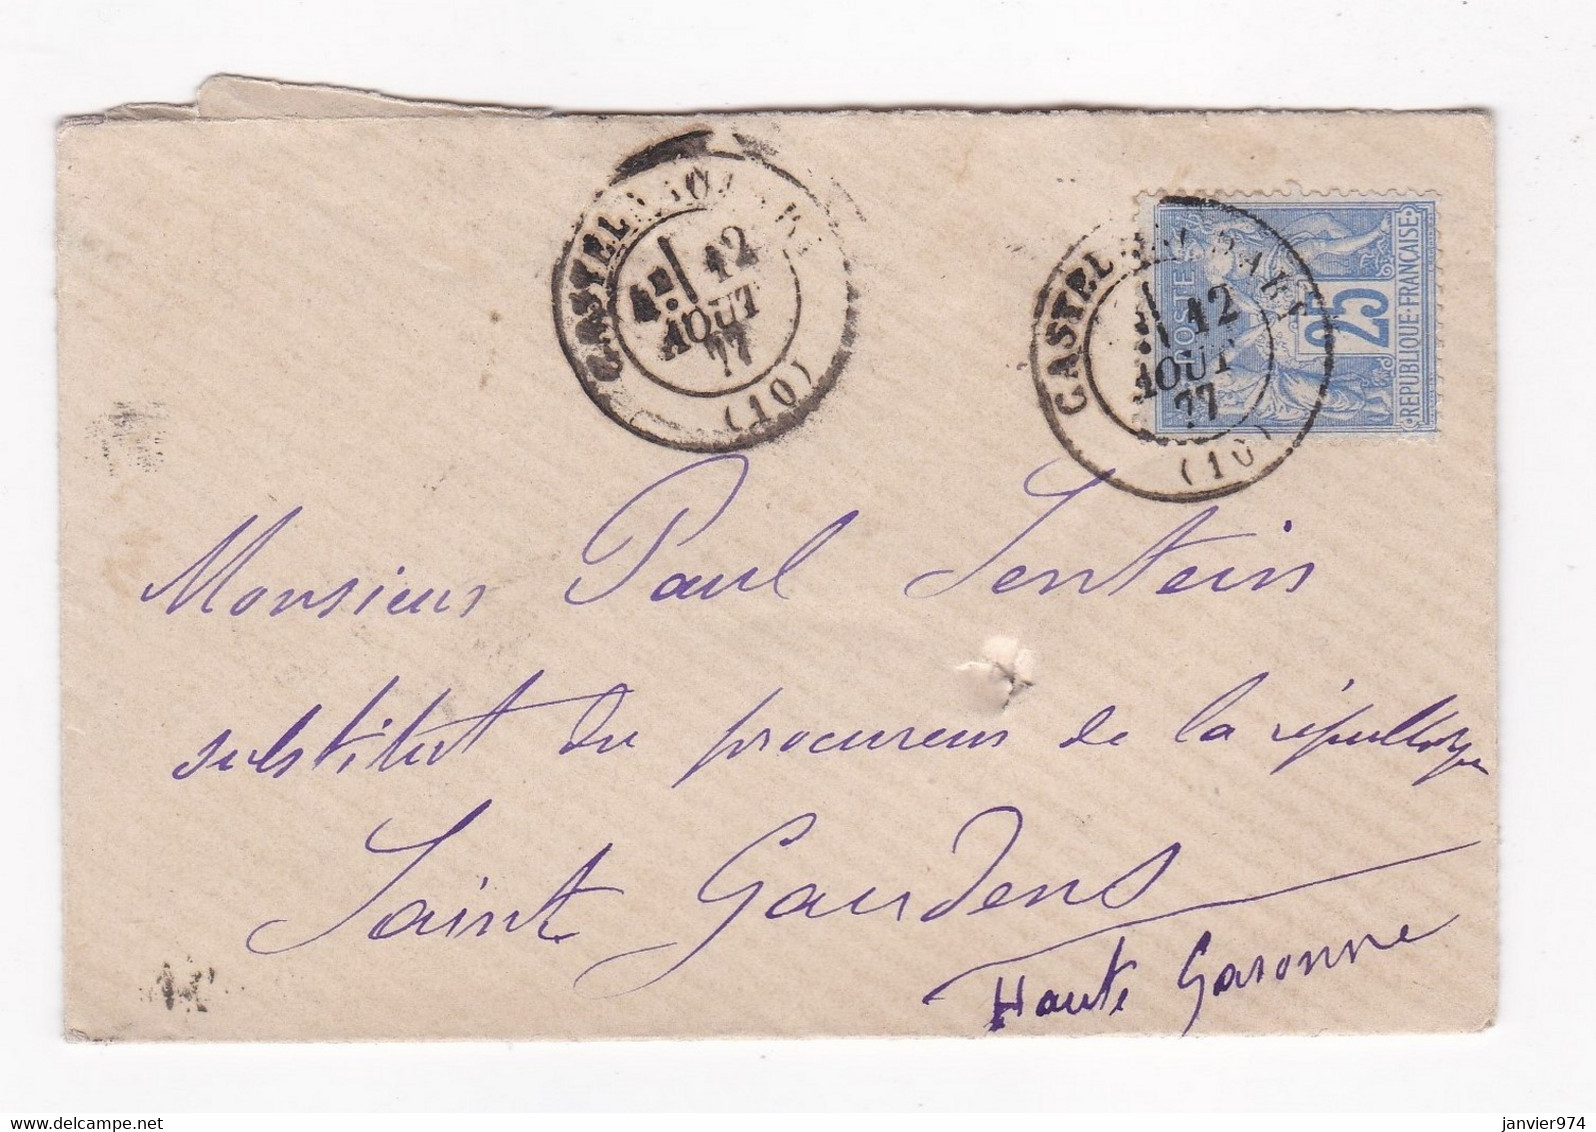 CASTELNAUDARY
4E 12
AOUT
77
(10)
CASTELNAUDARY
12
AOUT
77
(10)
POSTES
25
REPUBLIQUE FRANÇAISE
Monsieur Paul Sentein
substitut du procureur de la république
Saint Gaudens
Haute Garonne
janvier974